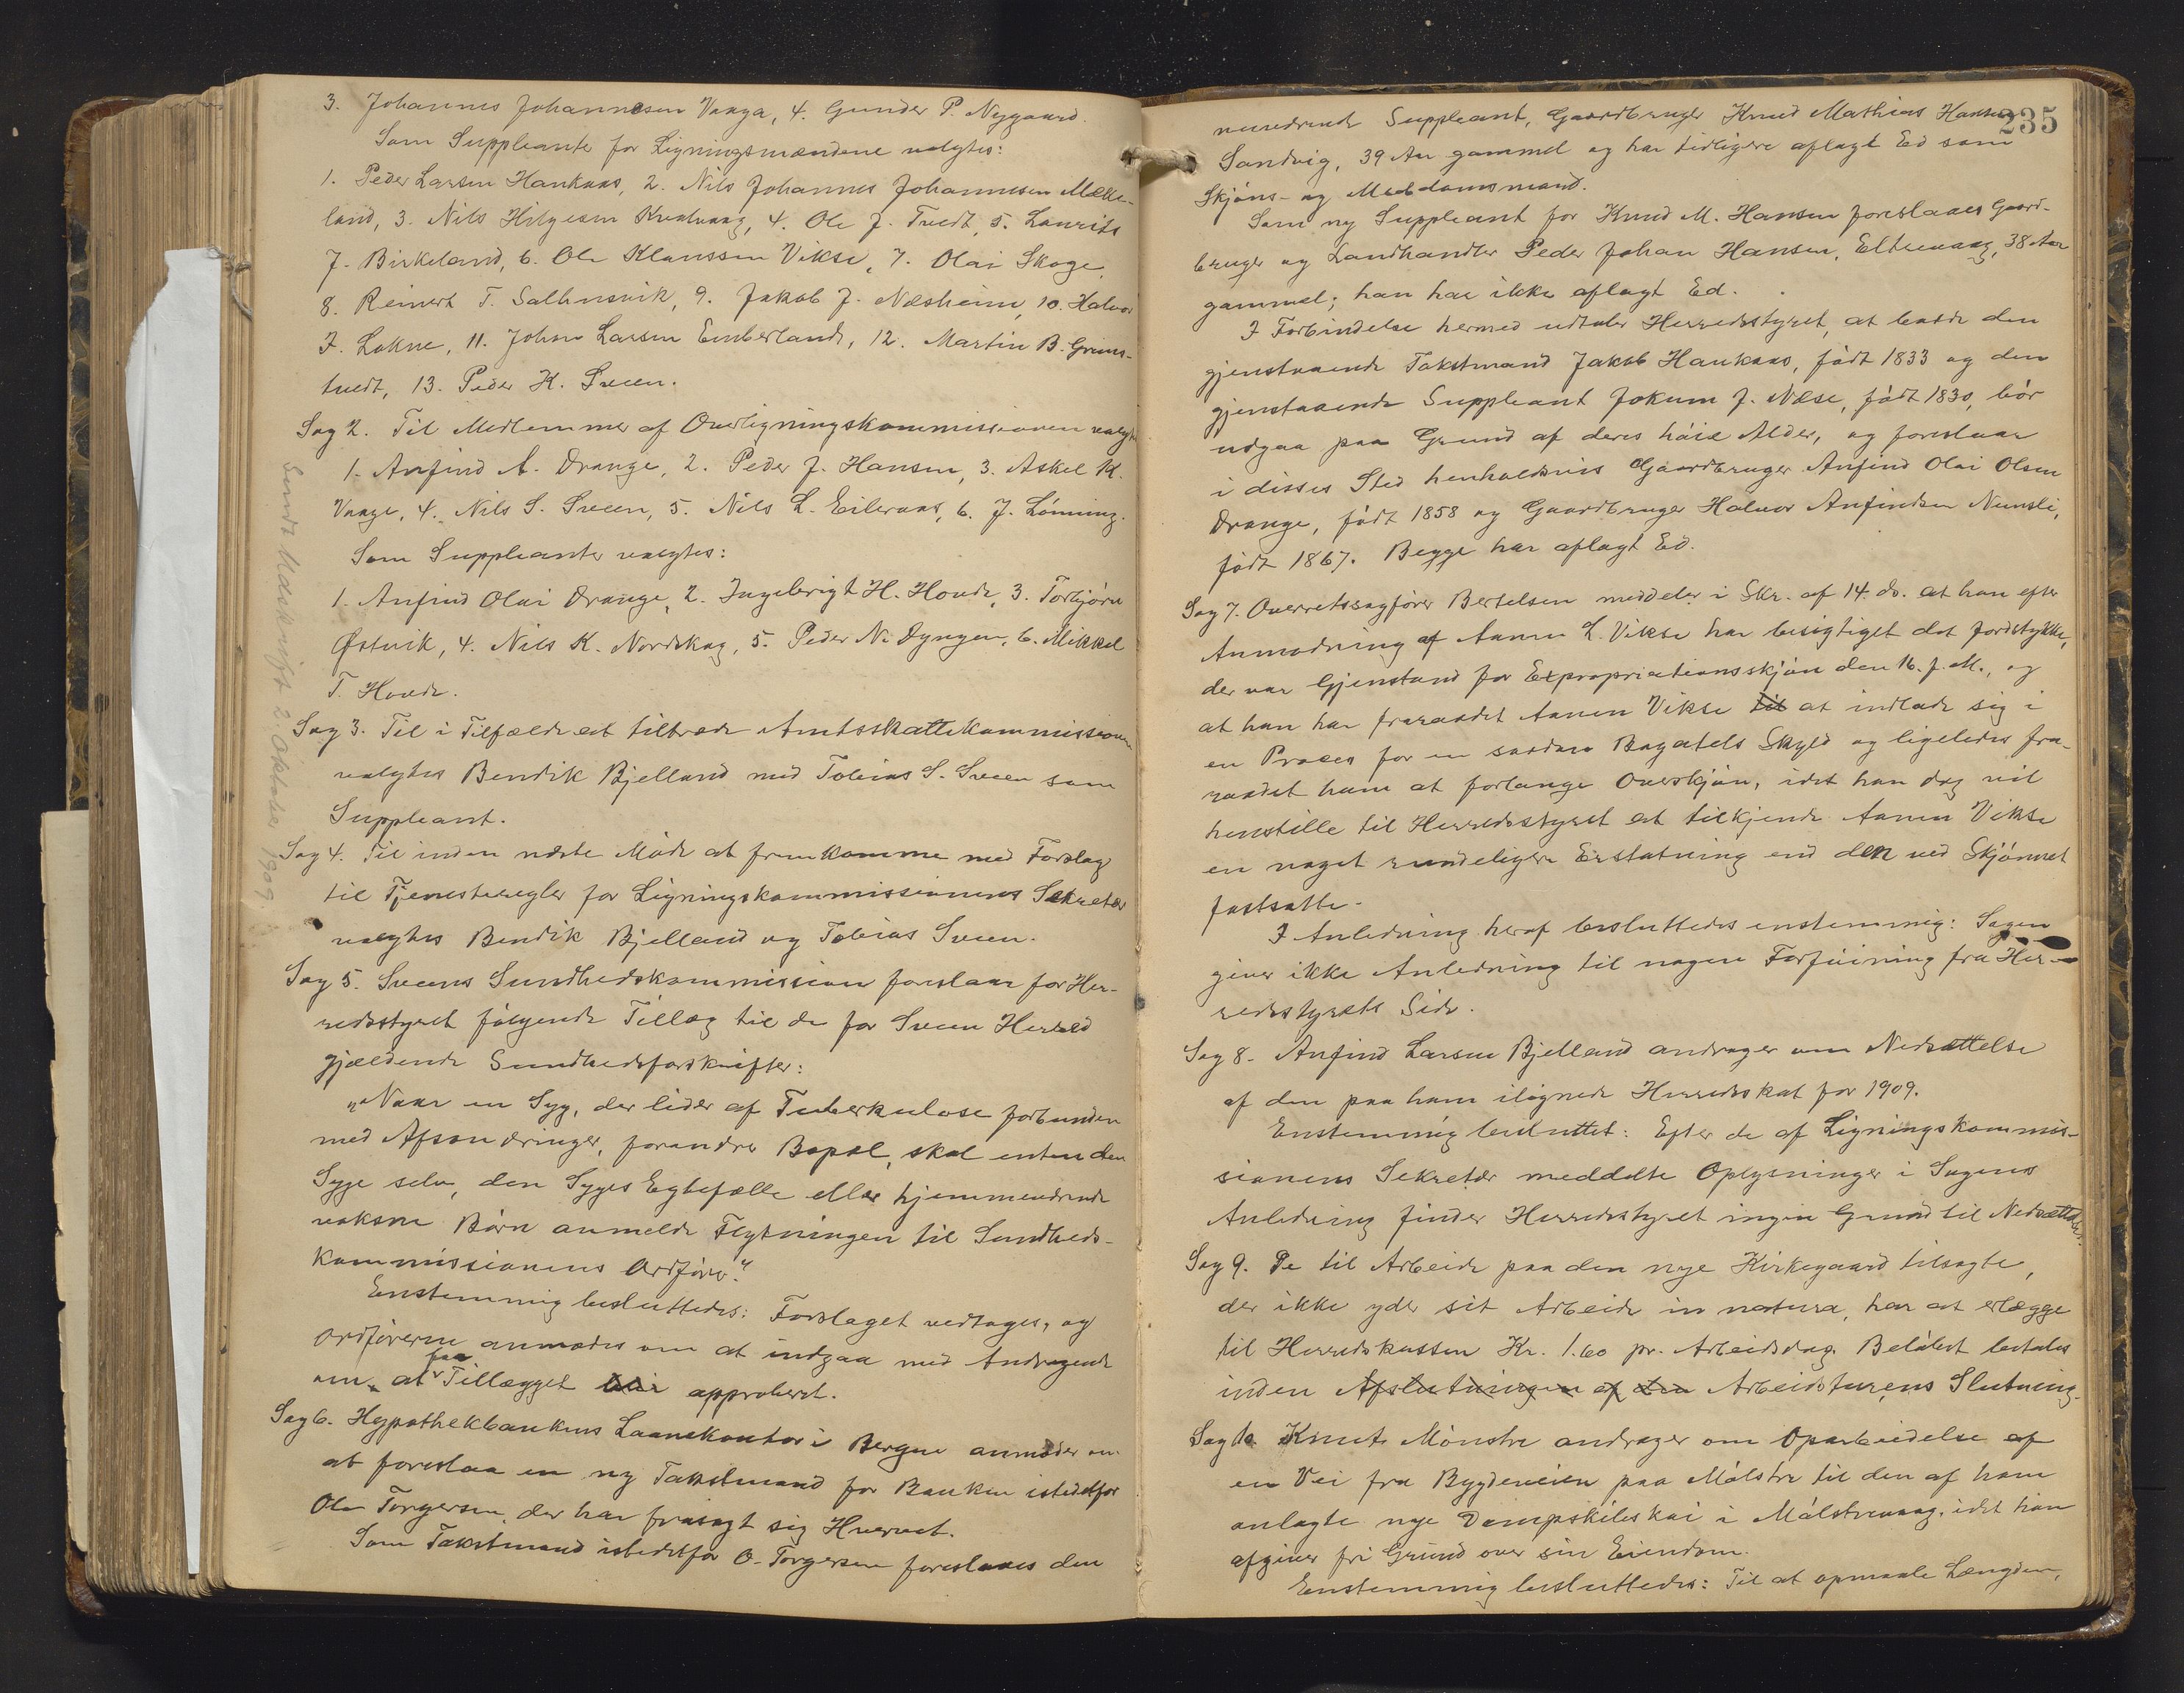 3. Johannes Johannesen Vaaga, 4. Gunder P. Nygaard.
Som Suppleanter for Ligningsmændene valgtes:
1. Peder Larsen Haukaas, 2. Nils Johannes Johannesen Mæke-
land, 3. Nils Helgesen Kvalvaag, 4. Ole J. Tvedt, 5. Laurits
J. Birkeland, 6. Ole Klaussen Vikse, 7. Olai Skoge,
8. Reinert T. Salhusvik, 9. Jakob J. Næsheim, 10. Halvor
J. Lokne, 11. Johan Larsen Emberland, 12. Martin B. Grøns-
tvedt, 13. Peder K. Sveen.
Sag 2. Til Medlemmer af Overligningskommissionen valgtes
1. Anfind A. Drange, 2. Peder J. Hansen, 3. Askel K.
Vaage, 4. Nils S. Sveen, 5. Nils L. Eileraas, 6. J. Lönning.
Som Suppleanter valgtes:
1. Anfind Olai Drange, 2. Ingebrigt H. Hovde, 3. Torbjörn
Østvik, 4. Nils K. Nordskog, 5. Peder N. Dyngen, 6. Mikkel
T. Hovde.
Sag 3. Til i Tilfælde at tiltræde Amtsskattekommissionen
valgtes Bendik Bjelland med Tobias S. Sveen som
Suppleant.
Sag 4. Til inden næste Möde at fremkomme med Forslag
til Tjenesteregler for Ligningskommissionens Sekretær
valgtes Bendik Bjelland og Tobias Sveen.
Sag 5. Sveens Sundhedskommission foreslaar for Her-
redsstyret fölgende Tillæg til de for Sveen Herred
gjældende Sundhedsforskrifter:
"Naar en Syg, der lider af Tuberkulose forbunden
med Afsondringer, forandrer Bopæl, skal enten den
Syge selv, den Syges Egtefælle eller hjemmeværende
voksne Börn anmelde Flytningen til Sundheds-
kommissionens Ordförer."
Enstemmig besluttedes: Forslaget vedtages, og
Ordföreren anmodes om at indgaa med Andragende
om at faa Tillægget blir approberet.
Sag 6. Hypothekbankens Laanekontor i Bergen anmoder om
at foreslaa en ny Takstmand for Banken istedetfor
Ole Torgersen, der har frasagt sig Hvervet.
Som Takstmand istedetfor O. Torgersen foreslaaes den
Sendt Udskrift 2. Oktober 1909.
235
nuværende Suppleant, Gaardbruger Knud Mathias Hansen
Sandvig, 39 Aar gammel og har tidligere aflagt Ed som
Skjöns- og Meddomsmand.
Som ny Suppleant for Knud M. Hansen foreslaaes Gaard-
bruger og Landhandler Peder Johan Hansen, Eltrevaag, 38 Aar
gammel; han har ikke aflagt Ed.
I Forbindelse hermed udtaler Herredsstyret, at baade den
gjenstaaende Takstmand Jakob Haukaas, födt 1833 og den
gjenstaaende Suppleant Jokum J. Næse, födt 1830, bör
udgaa paa Grund af deres höie Alder, og foreslaar
i disses Sted henholdsvis Gaardbruger Anfind Olai Olsen
Drange, födt 1858 og Gaardbruger Halvor Anfindsen Nernsli,
födt 1867. Begge har aflagt Ed.
Sag 7. Overretssagförer Bertelsen meddeler i Skr. af 14. ds. at han efter
Anmodning af Aanen L. Vikse har besigtiget det Jordstykke,
der var Gjenstand for Expropriationsskjön den 16. f. M., og
at han har fraraadet Aanen Vikse til at indlade sig i
en Proces for en saadan Bagatels Skyld og ligeledes fra-
raadet ham at forlange Overskjön, idet han dog vil
henstille til Herredsstyret at tilkjende Aanen Vikse
en noget rundeligere Erstatning end den ved Skjönnet
fastsatte.
I Anledning heraf besluttedes enstemmig: Sagen
giver ikke Anledning til nogen Forföining fra Her-
redsstyrets Side.
Sag 8. Anfind Larsen Bjelland andrager om Nedsættelse
af den paa ham ilignede Herredsskat for 1909.
Enstemmig besluttet: Efter de af Ligningskommis-
sionens Sekretær meddelte Oplysninger i Sagens
Anledning finder Herredsstyret ingen Grund til Nedsættelse.
Sag 9. De til Arbeide paa den nye Kirkegaard tilsagte,
der ikke yder sit Arbeide in natura, har at erlægge
til Herredskassen Kr. 1.60 pr. Arbeidsdag. Belöbet betales
inden Afslutningen af den Arbeidsturens Slutning.
Sag 10. Knut Mönstre andrager om Oparbeidelse af
en Vei fra Bygdeveien paa Mölstre til den af ham
anlagte nye Dampskibskai i Mölstrevaag, idet han
afgiver fri Grund over sin Eiendom.
Enstemmig besluttedes: Til at opmaale Længden,